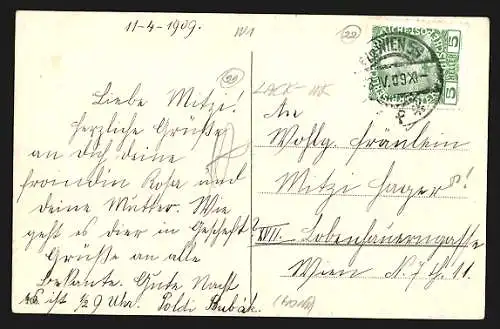 11-4-1909.
22
20
LACK-
Liebe Mitzi!
Herzliche Grüße
an dich deine
froindin Rosa und
deine Mutter. Wie
geht es dier in Geschäft?
Grüße an alle
Bekante. Gute Nacht
es ist ½ 9 Uhr. Poldi
An
Wohlg. Fräulein
Mitzi Hager!
XVII. Lobenhauerngasse
Wien N. 7 th. 11.
WIEN
5
5